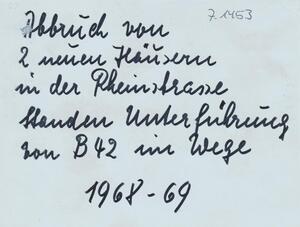 7.1453
Abbruch von
2 neuen Häusern
in der Rheinstrasse
standen Unterführung
von B42 im Wege
1968-69